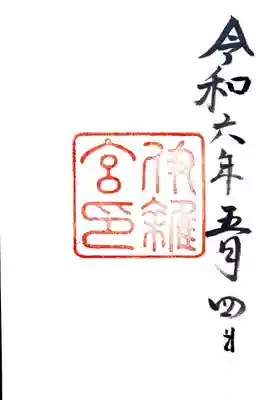 令和六年五月四日
伊雜
宮印